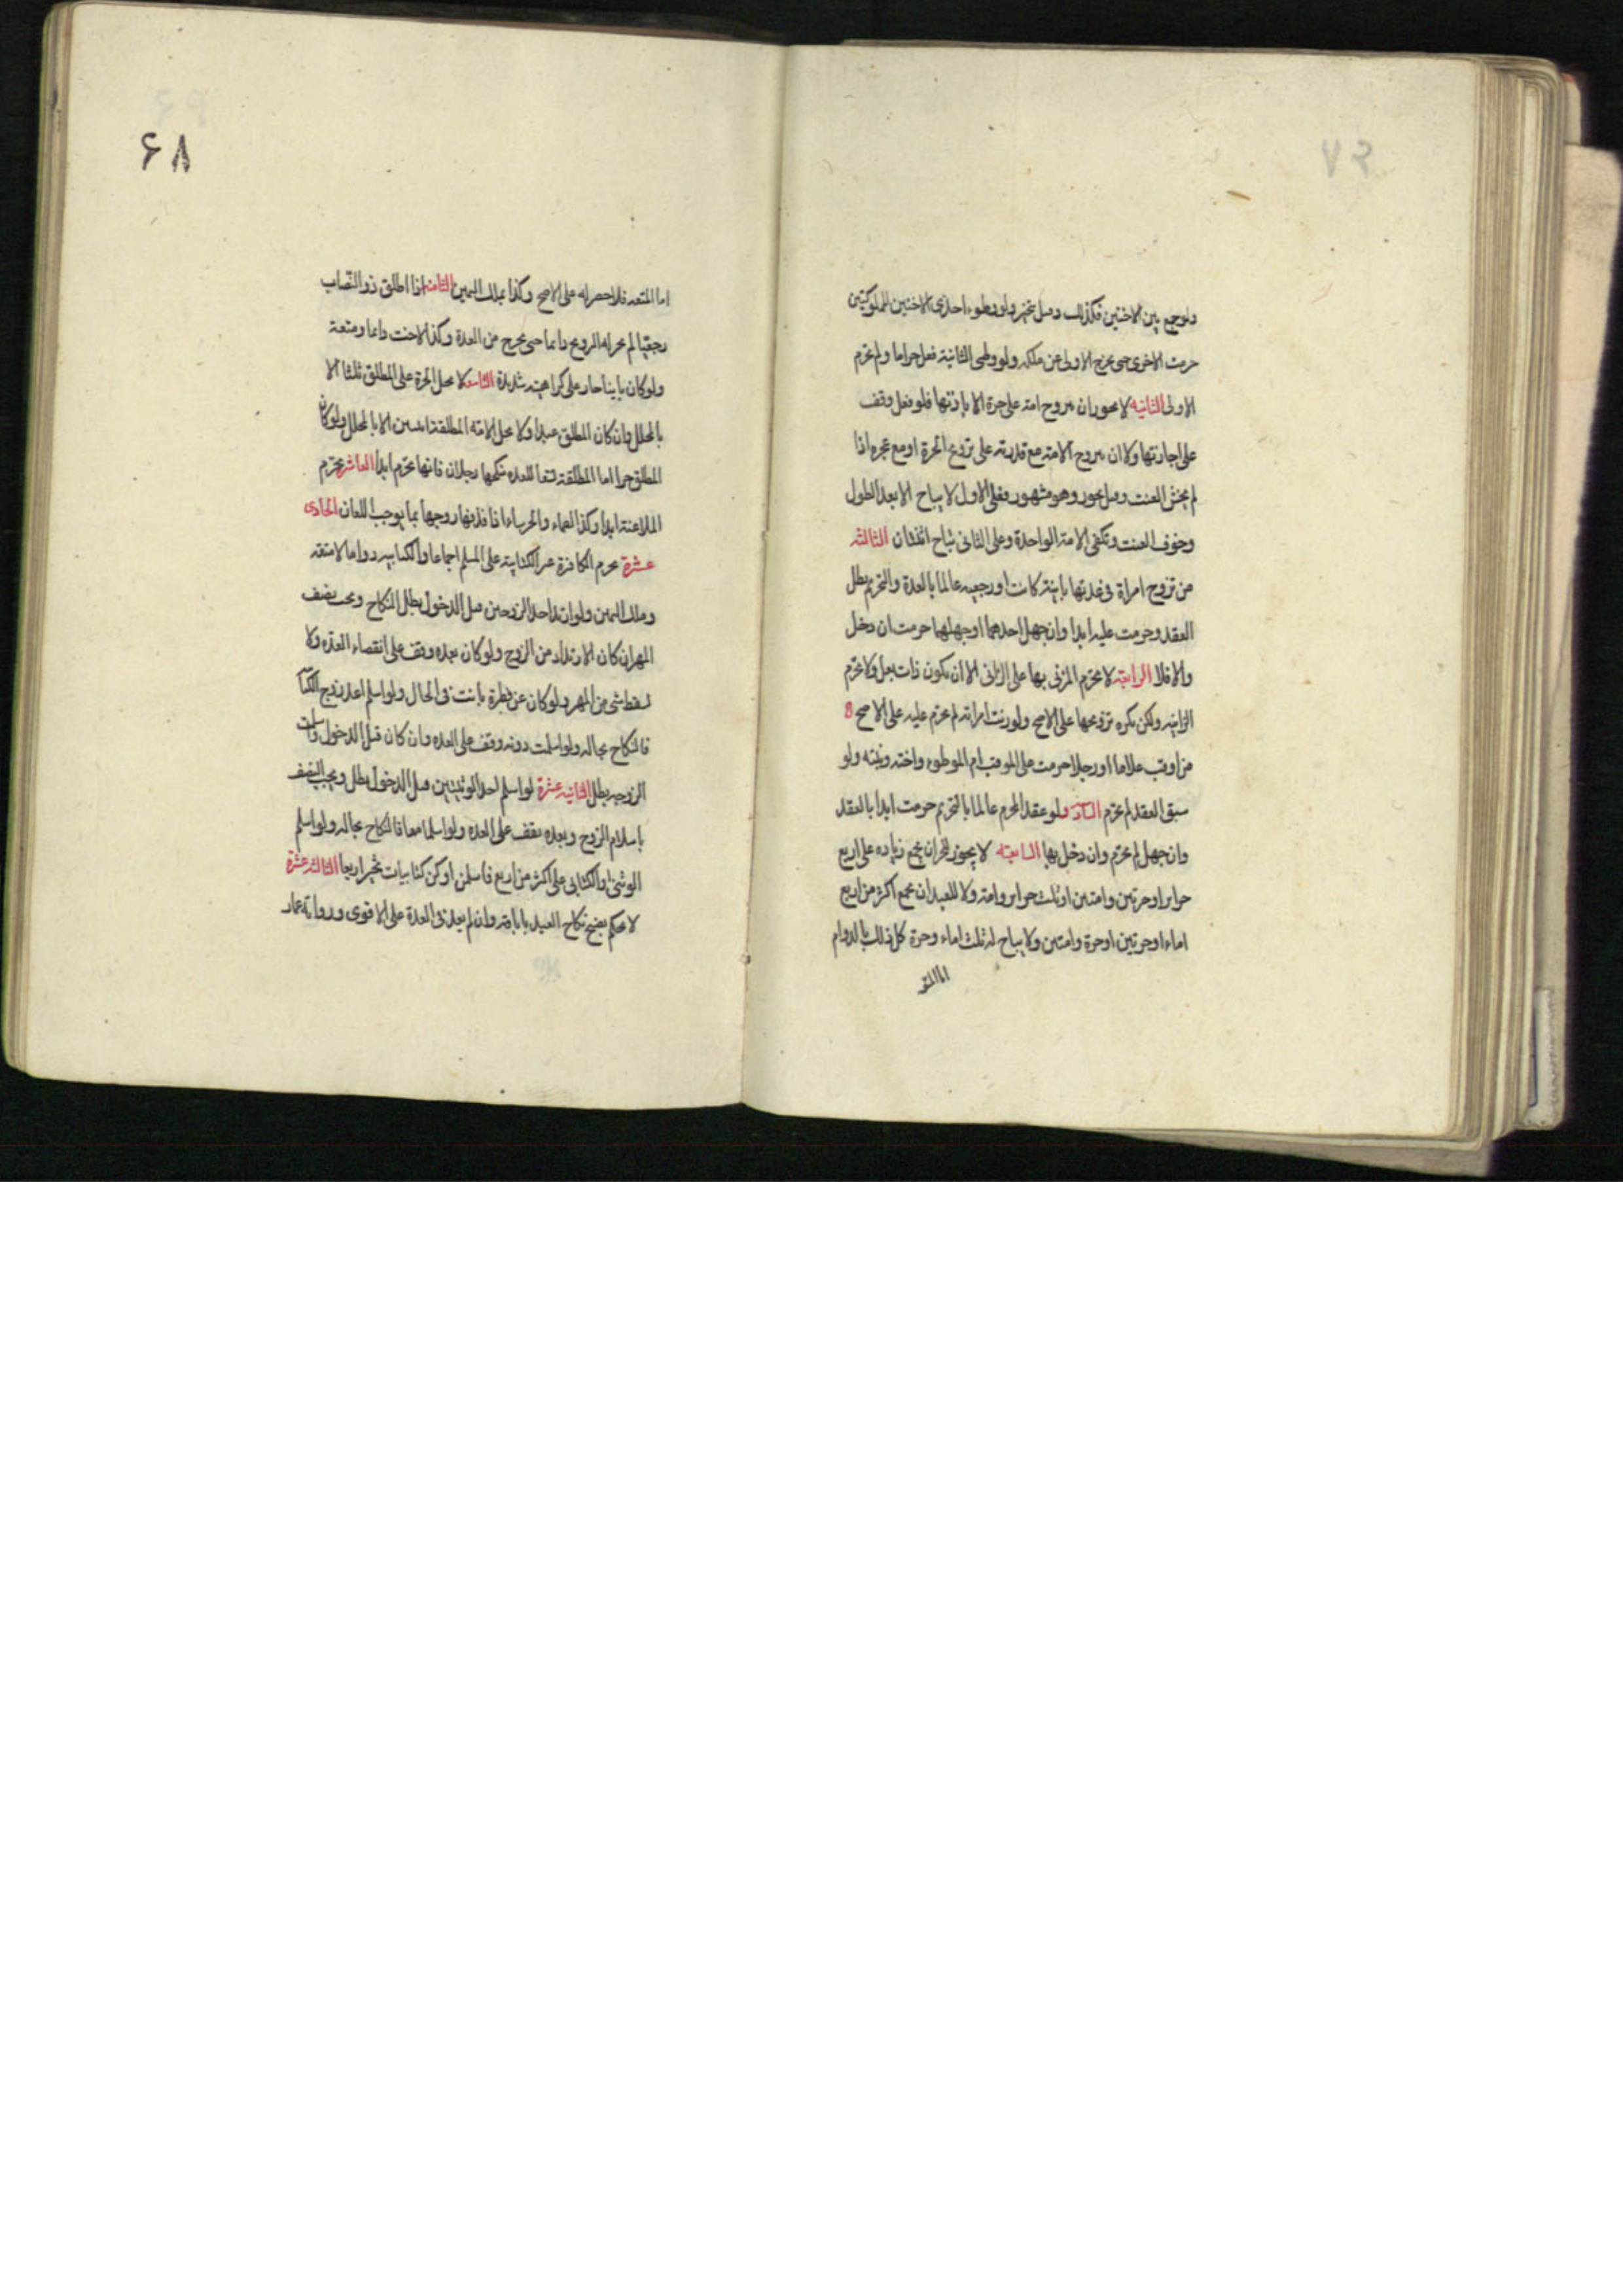 ولو جمع بين الاختين فكذلك وقيل يتخير ولو وطىء احدى الاختين المملوكتين
حرمت الاخرى حتى يخرج الاولى عن ملكه ولو وطى الثانية فعل حراما ولم تحرم
الاولى الثانيه لا يجوز ان يتزوج امة على حرة الا باذنها فلو فعل وقف
على اجازتها ولا ان يتزوج الامة مع قدرته على تزويج الحرة او مع عجزه اذا
لم يخش العنت وقيل يجوز وهو مشهور فعلى الاول لا يباح الا بعد الطول
وخوف العنت وتكفى الامة الواحدة وعلى الثانى يباح اثنتان الثالثة
من تزوج امراة فى عدتها باينة كانت او رجعيه عالما بالعدة والتحريم بطل
العقد وحرمت عليه ابدا وان جهل احدهما او جهلهما حرمت ان دخل
والا فلا الرابعة لا تحرم المزنى بها على الزانى الا ان يكون ذات بعل ولا تحرم
الزانيه ولكن يكره تزويجها على الاصح ولو زنت امراته لم تحرم عليه على الاصح
من اوقب غلاما او رجلا حرمت على الموقب ام الموطوء واخته وبنته ولو
سبق العقد لم تحرم الساد ولو عقد المحرم عالما بالتحريم حرمت ابدا بالعقد
وان جهل لم تحرم وان دخل بها السابعة لا يجوز للحر ان يجمع زياده على اربع
حراير او حرتين وامتين او ثلث حراير وامة ولا للعبد ان يجمع اكثر من اربع
اماء او حرتين او حرة وامتين ولا يباح له ثلث اماء وحرة كل ذلك بالدوام
اما المتعة
۶۸
اما المتعه فلا حصر له على الاصح وكذا بملك اليمين الثامنة اذا طلق ذو النصاب
رجعيا لم يجز له التزويج دايما حتى يخرج من العدة وكذا الاخت دايما ومتعة
ولو كان باينا جاز على كراهية شديدة التاسعه لا تحل الحرة على المطلق ثلثا الا
بالمحلل وان كان المطلق عبدا ولا تحل الامة المطلقة اثنتين الا بالمحلل ولو كان
المطلق حرا اما المطلقة تسعا للعده ينكحها رجلان فانها تحرم ابدا العاشره تحرم
الملاعنة ابدا وكذا الصماء والخرساء اذا قذفها زوجها بما يوجب اللعان الحادى
عشرة تحرم الكافرة غير الكتابية على المسلم اجماعا والكتابيه دواما لا متعة
وملك اليمين ولو ارتد احد الزوجين قبل الدخول بطل النكاح ويجب نصف
المهر ان كان الارتداد من الزوج ولو كان بعده وقف على انقضاء العده ولا
يسقط شى من المهر ولو كان عن فطرة بانت فى الحال ولو اسلم احد زوج الكتا
فالنكاح بحاله ولو اسلمت دونه وقف على العده وان كان قبل الدخول واسلمت
الزوجه بطل الثانيه عشرة لو اسلم احد الوثنيين قبل الدخول بطل ويجب النصف
باسلام الزوج وبعده يقف على العده ولو اسلما معا فالنكاح بحاله ولو اسلم
الوثنى او الكتابى على اكثر من اربع فاسلمن او كن كتابيات تخير اربعا الثالثه عشرة
لا يحكم بفسخ نكاح العبد باباقه وان لم يعد فى العدة على الاقوى ورواية عمار